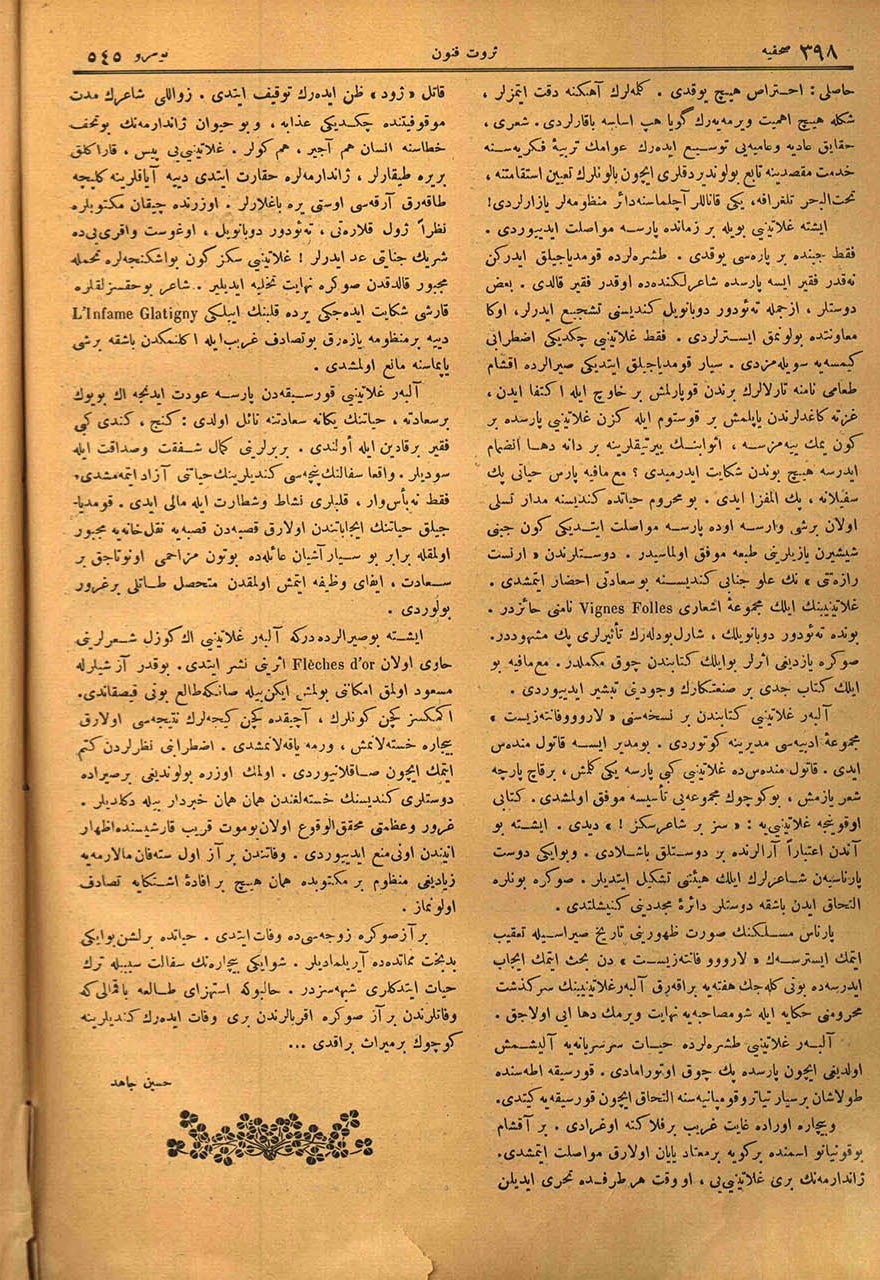 صحیفه ٣٩٨
ثروت فنون
نومرو ٥٤٥
حاصلی : احتراص هیچ یوقدی . کله‌لرك آهنکنه دقت ایتمزلر ،
شکله هیچ اهمیت ویرمه‌یه‌رك گویا هپ اساسه باقارلردی . شعری ،
حقایق عادیه وعامیه‌یی توسیع ایده‌رك عوامك تربیهٔ فکریه‌سنه
خدمت مقصدینه تابع بولوندیردقلری ایچون بالونلرك تعیین استقامتنه ،
تحت‌البحر تلغرافه، یکی قاناللر آچلماسنه‌دائر منظومه‌لر یازارلردی!
ایشته غلاتینیی بویله بر زمانده پارسه مواصلت ایدییوردی .
فقط جبنده بر پاره‌سی یوقدی . طشره‌لرده قومدیاجیلق ایدرکن
نه‌قدر فقیر ایسه پارسده شاعرلکنده‌ده اوقدر فقیر قالدی . بعض
دوستلر ، ازجمله ته‌ئودور دوبانویل کندیسنی تشجیع ایدرلر، اوکا
معاونتده بولونمق ایسترلردی . فقط غلاتینیی چکدیکی اضطرابی
کیمسه‌یه سویله‌مزدی . سیار قومدیاجیلق ایتدیکی صیرالرده اقشام
طعامی نامنه تارلالرك برندن قوپارلمش بر خاوچ ایله اکتفا ایدن ،
غزته کاغدلرندن یاپلمش بر قوستوم ایله کزن غلاتینیی پارسده بر
کون یمك ییه‌مزسه ، اثوابنك ییرتیقلرینه بر دانه دها انضمام
ایدرسه هیچ بوندن شکایت ایدرمیدی ؟ مع‌مافیه پارس حیاتی پك
سفیلانه ، پك الم‌فزا ایدی . بو محروم حیاتده کندیسنه مدار تسلی
اولان برشی وارسه اوده پارسه مواصلت ایتدیکی کون جبنی
شیشیرن یازیلرینی طبعه موفق اولماسیدر . دوستلرندن « ارنست
رازه‌تی » نك علو جنابی کندیسنه بو سعادتی احضار ایتمشدی .
غلاتینیینك ایلك مجموعهٔ اشعاری Vignes Folles نامنی حائزدر .
بونده ته‌ئودور دوبانویلك ، شارل بودله‌رك تأثیرلری پك مشهوددر.
صوکره یازدیغی اثرلر بوایلك کتابندن چوق مکملدر. مع‌مافیه بو
ایلك کتاب جدی بر صنعتکارك وجودینی تبشیر ایدییوردی .
آلبه‌ر غلاتینیی کتابندن بر نسخه‌سنی « لاروووفانته‌زیست »
مجموعهٔ ادبیه‌سی مدیرینه کوتوردی . بومدیر ایسه قاتول منده‌س
ایدی . قاتول منده‌س‌ده غلاتینیی کبی پارسه یکی کلمش ، برقاچ پارچه
شعر یازمش ، بوکوچوك مجموعه‌یی تأسیسه موفق اولمشدی . کتابی
اوقویجه غلاتینیی‌یه : « سز بر شاعرسکز ! » دیدی . ایشته بو
آندن اعتباراً آرالرنده بر دوستلق باشلادی . وبوایکی دوست
پارناسیه‌ن شاعرلرك ایلك هیئتنی تشکیل ایتدیلر . صوکره بونلره
التحاق ایدن باشقه دوستلر دائرهٔ مجددینی کنیشلتدی .
پارناس مسلکنك صورت ظهورینی تاریخ صیراسیله تعقیب
ایتمك ایسترسه‌ك « لارووو فانته‌زیست » دن بحث ایتمك ایجاب
ایدرسه‌ده بونی کله‌جك هفته‌یه براقه‌رق آلبه‌ر غلاتینیینك سرکذشت
محرومنی حکایه ایله شو مصاحبه‌یه نهایت ویرمك دها ایی اولاجق .
آلبه‌ر غلاتینیی طشره‌لرده حیات سرسریانه‌یه آلیشمش
اولدیغی ایچون پارسده پك چوق اوتورامادی . قورسیقه اطه‌سنده
طولاشان برسیار تیاترو قومپانیه‌سنه التحاق ایچون قورسیقه‌یه کیتدی.
وبیچاره اوراده غایت غریب برفلاکته اوغرادی . بر آقشام
بوقونیانو اسمنده برکویه برمعتاد یایان اولارق مواصلت ایتمشدی.
ژاندارمه‌نك بری غلاتینیی‌یی ، او وقت هر طرفده تحری ایدیلن
قاتل « ژود » ظن ایده‌رك توقیف ایتدی . زواللی شاعرك مدت
موقوفیتنده چکدیکی عذابه ، وبو حیوان ژاندارمه‌نك بوتحف
خطاسنه انسان هم آجیر ، هم کولر . غلاتینیی‌یی پیس ، قاراکلق
بریره طیقارلر ، ژاندارمه‌لره حقارت ایتدی دییه آیاقلرینه کلپچه
طاقه‌رق آرقه‌سی اوستی یره باغلارلر . اوزرنده چیقان مکتوبلره
نظراً ژول قلاره‌تی ، ته‌ئودور دوبانویل ، اوغوست واقری‌یی‌ده
شریك جنایتی عد ایدرلر ! غلاتینیی سکز کون بواشکنجه‌لره تحمله
مجبور قالدقدن صوکره نهایت تخلیه ایدیلیر . شاعر بوحقسزلقلره
قارشی شکایت ایده‌جکی یرده قلبنك اییلکی L'Infame Glatigny
دییه برمنظومه یازه‌رق بوتصادف غریب‌ایله اکلنمکدن باشقه برشی
یاپماسنه مانع اولمشدی .
آلبه‌ر غلاتینیی قورسیقه‌دن پارسه عودت ایدنجه اك بویوك
برسعادته ، حیاتنك یکانه سعادتنه نائل اولدی : کنج ، کندی کبی
فقیر برقادین ایله أولندی . بربرلرینی کمال شفقت وصداقت ایله
سودیلر. واقعا سفالتك پنچه‌سی کندیلرینك حیاتنی آزاد ایتمه‌مشدی.
فقط نه‌بأس‌وار ، قلبلری نشاط وشطارت ایله مالی ایدی . قومدیا-
جیلق حیاتنك ایجاباتندن اولارق قصبه‌دن قصبه‌یه نقل‌خانه‌یه مجبور
اولمقله برابر بو سیار آشیان عائله‌ده بوتون مزاحمی اونوتاجق بر
سعادت ، ایفای وظیفه ایتمش اولمقدن متحصل طاتلی برغرور
بولوردی .
ایشته بوصیرالرده‌درکه آلبه‌ر غلاتینیی اك کوزل شعرلرینی
حاوی اولان Flèches d'or اثرینی نشر ایتدی. بوقدر آز شیلرله
مسعود اولمق امکانی بولمش ایکن‌بیله صانکه‌طالع بونی قیصقاندی.
اکمکسز کچن کونلرك ، آجیقده کچن کیجه‌لرك نتیجه‌سی اولارق
بیچاره خسته‌لانمش ، ورمه یاقه‌لانمشدی . اضطرابی نظرلردن کتم
ایتمك ایچون صاقلانیوردی . اولمك اوزره بولوندیغی برصیراده
دوستلری کندیسنك خسته‌لغندن همان همان خبردار بیله دکلدیلر .
غرور وعظمتی محقق‌الوقوع اولان بوموت قریب قارشیسنده‌اظهار
انیندن اونی‌منع ایدییوردی . وفاتندن بر آز اول سته‌فان مالارمه‌یه
زیادینی منظوم بر مکتوبده همان هیچ بر افادهٔ اشتکایه تصادف
اولونماز .
بر آزصوکره زوجه‌سی‌ده وفات ایتدی . حیاتده برلشن بوایکی
بدبخت مماتده‌ده آیریلمادیلر . شوایکی بیچاره‌نك سفالت سببیله ترك
حیات ایتدکلری شبهه‌سزدر . حالبوکه استهزای طالعه باقمالی که
وفاتلرندن بر آز صوکره اقربالرندن بری وفات ایده‌رك کندیلرینه
کوچوك برمیراث براقدی ...
حسین جاهد